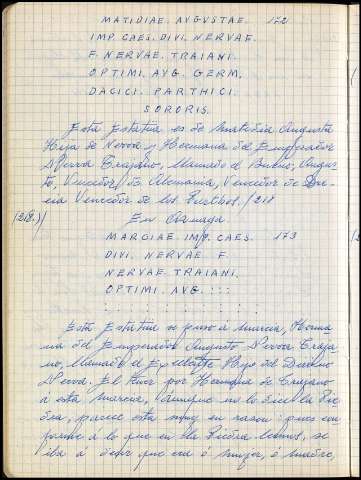 MATIDIAE. AVGVSTAE. 172
IMP. CAES. DIVI. NERVAE.
F. NERVAE. TRAIANI.
OPTIMI. AVG. GERM.
DACICI. PARTHICI.
SORORIS.
Esta Estatua es de Matidia Augusta
Hija de Nerva y Hermana del Emperador
Nerva Trajano, llamado el Bueno, Augus-
to, Vencedor de Alemania, Vencedor de
cia Vencedor de los Parthos. /218
(218.)/ En
MARCIAE. IMP. CAES. 173
DIVI. NERVAE. F.
NERVAE. TRAIANI.
OPTIMI. AVG. : : :
Esta Estatua se puso á Marcia, Herma-
na del Emperador Augusto Nerva Traja-
no, llamado el Hijo del Divino
Nerva. El por Hermana de Trajano
á esta Marcia, aunque no lo dice la Pie-
dra, parece esta muy en razon: pues con-
forme á lo que en la Piedra vemos, se
iba á decir que era ó mujer, ó madre,